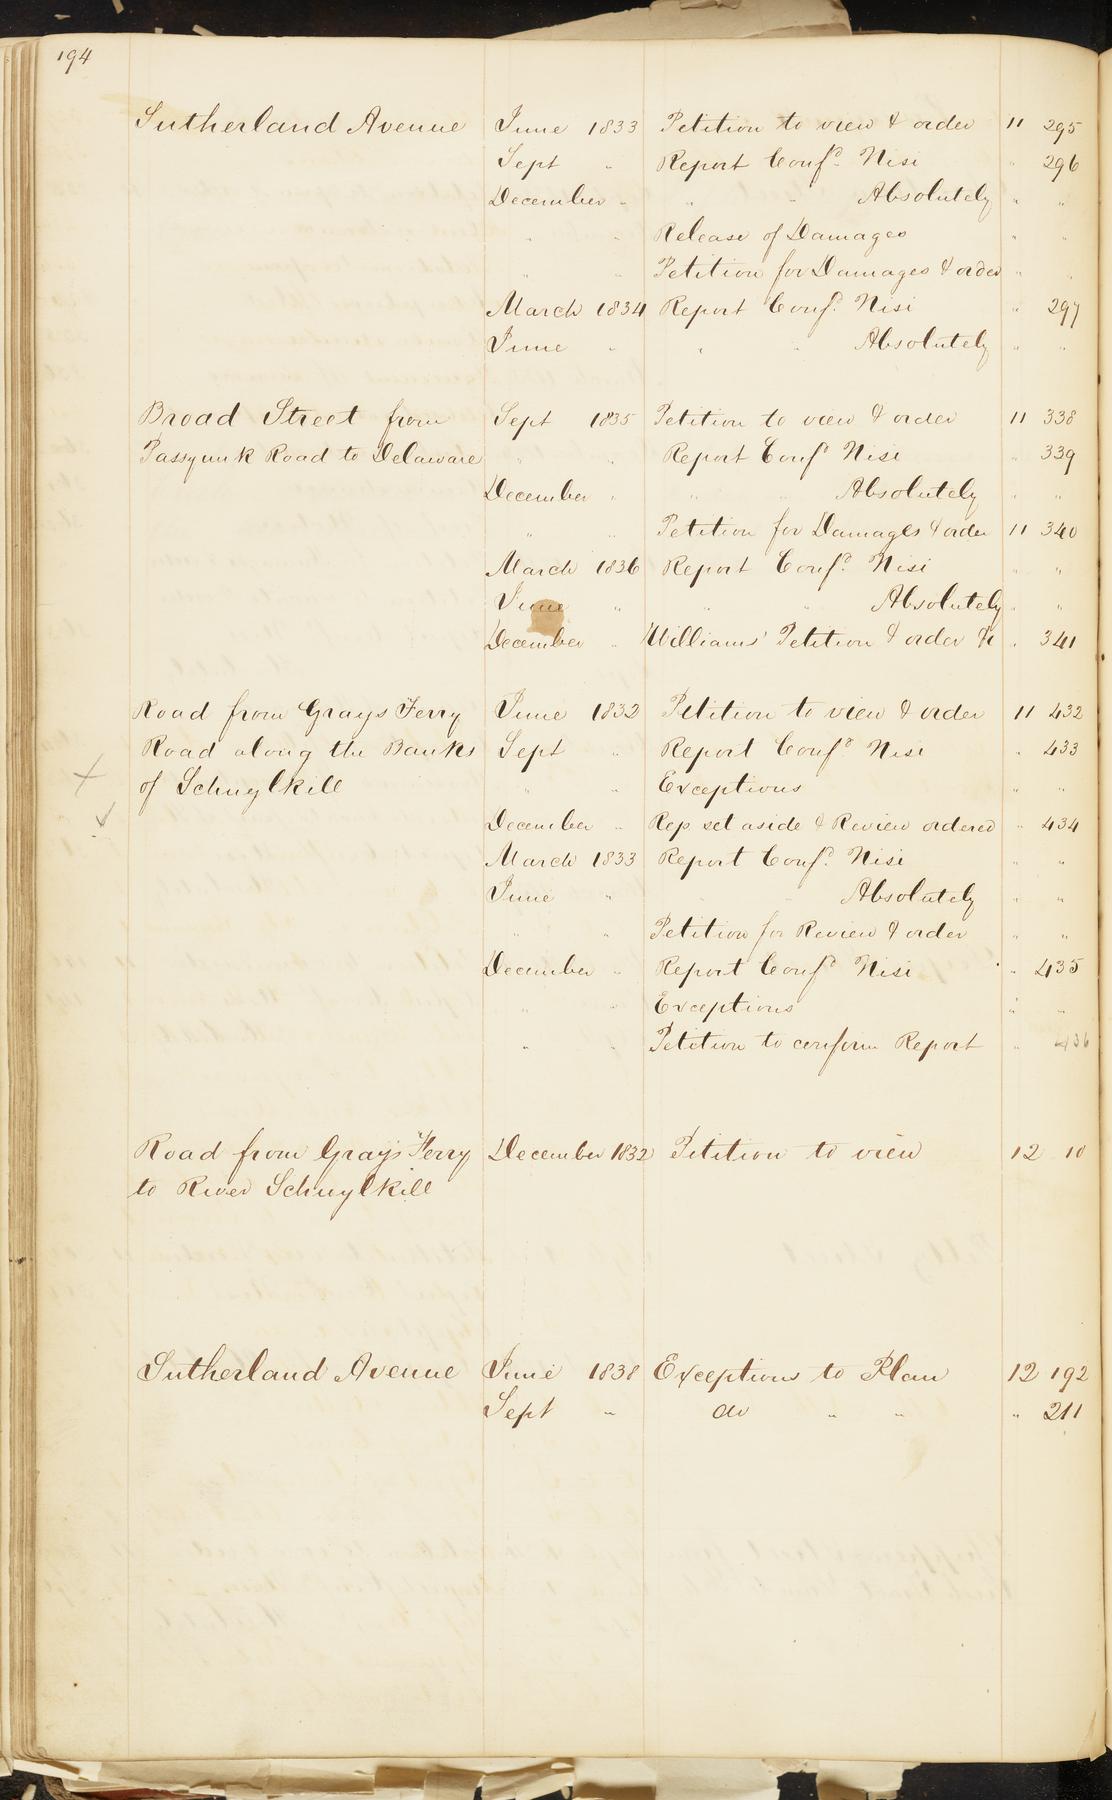 194
Sutherland Avenue June 1833 Petition to view & order 11 295
Sept " Report Conf.d Nisi " 296
December " " " Absolutely " "
" " Release of Damages " "
" " Petition for Damages & order " "
March 1834 Report Conf.d Nisi " 297
June " " " Absolutely " "
Broad Street from Sept 1835 Petition to view & order 11 338
Passyunk Road to Delaware " " Report Conf.d Nisi " 339
December " " " Absolutely " "
" " Petition for Damages & order 11 340
March 1836 Report Conf.d Nisi " "
June " " " Absolutely " "
December " Williams' Petition & order &c " 341
Road from Grays Ferry June 1832 Petition to view & order 11 432
Road along the Banks Sept " Report Conf.d Nisi " 433
of Schuylkill " " Exceptions " "
December " Rep set aside & Review ordered " 434
March 1833 Report Conf.d Nisi " "
June " " " Absolutely " "
" " Petition for Review & order " "
December " Report Conf.d Nisi " 435
" " Exceptions " "
" " Petition to confirm Report " 436
Road from Gray's Ferry December 1832 Petition to view 12 10
to River Schuylkill
Sutherland Avenue June 1838 Exceptions to Plan 12 192
Sept " do " " " 211